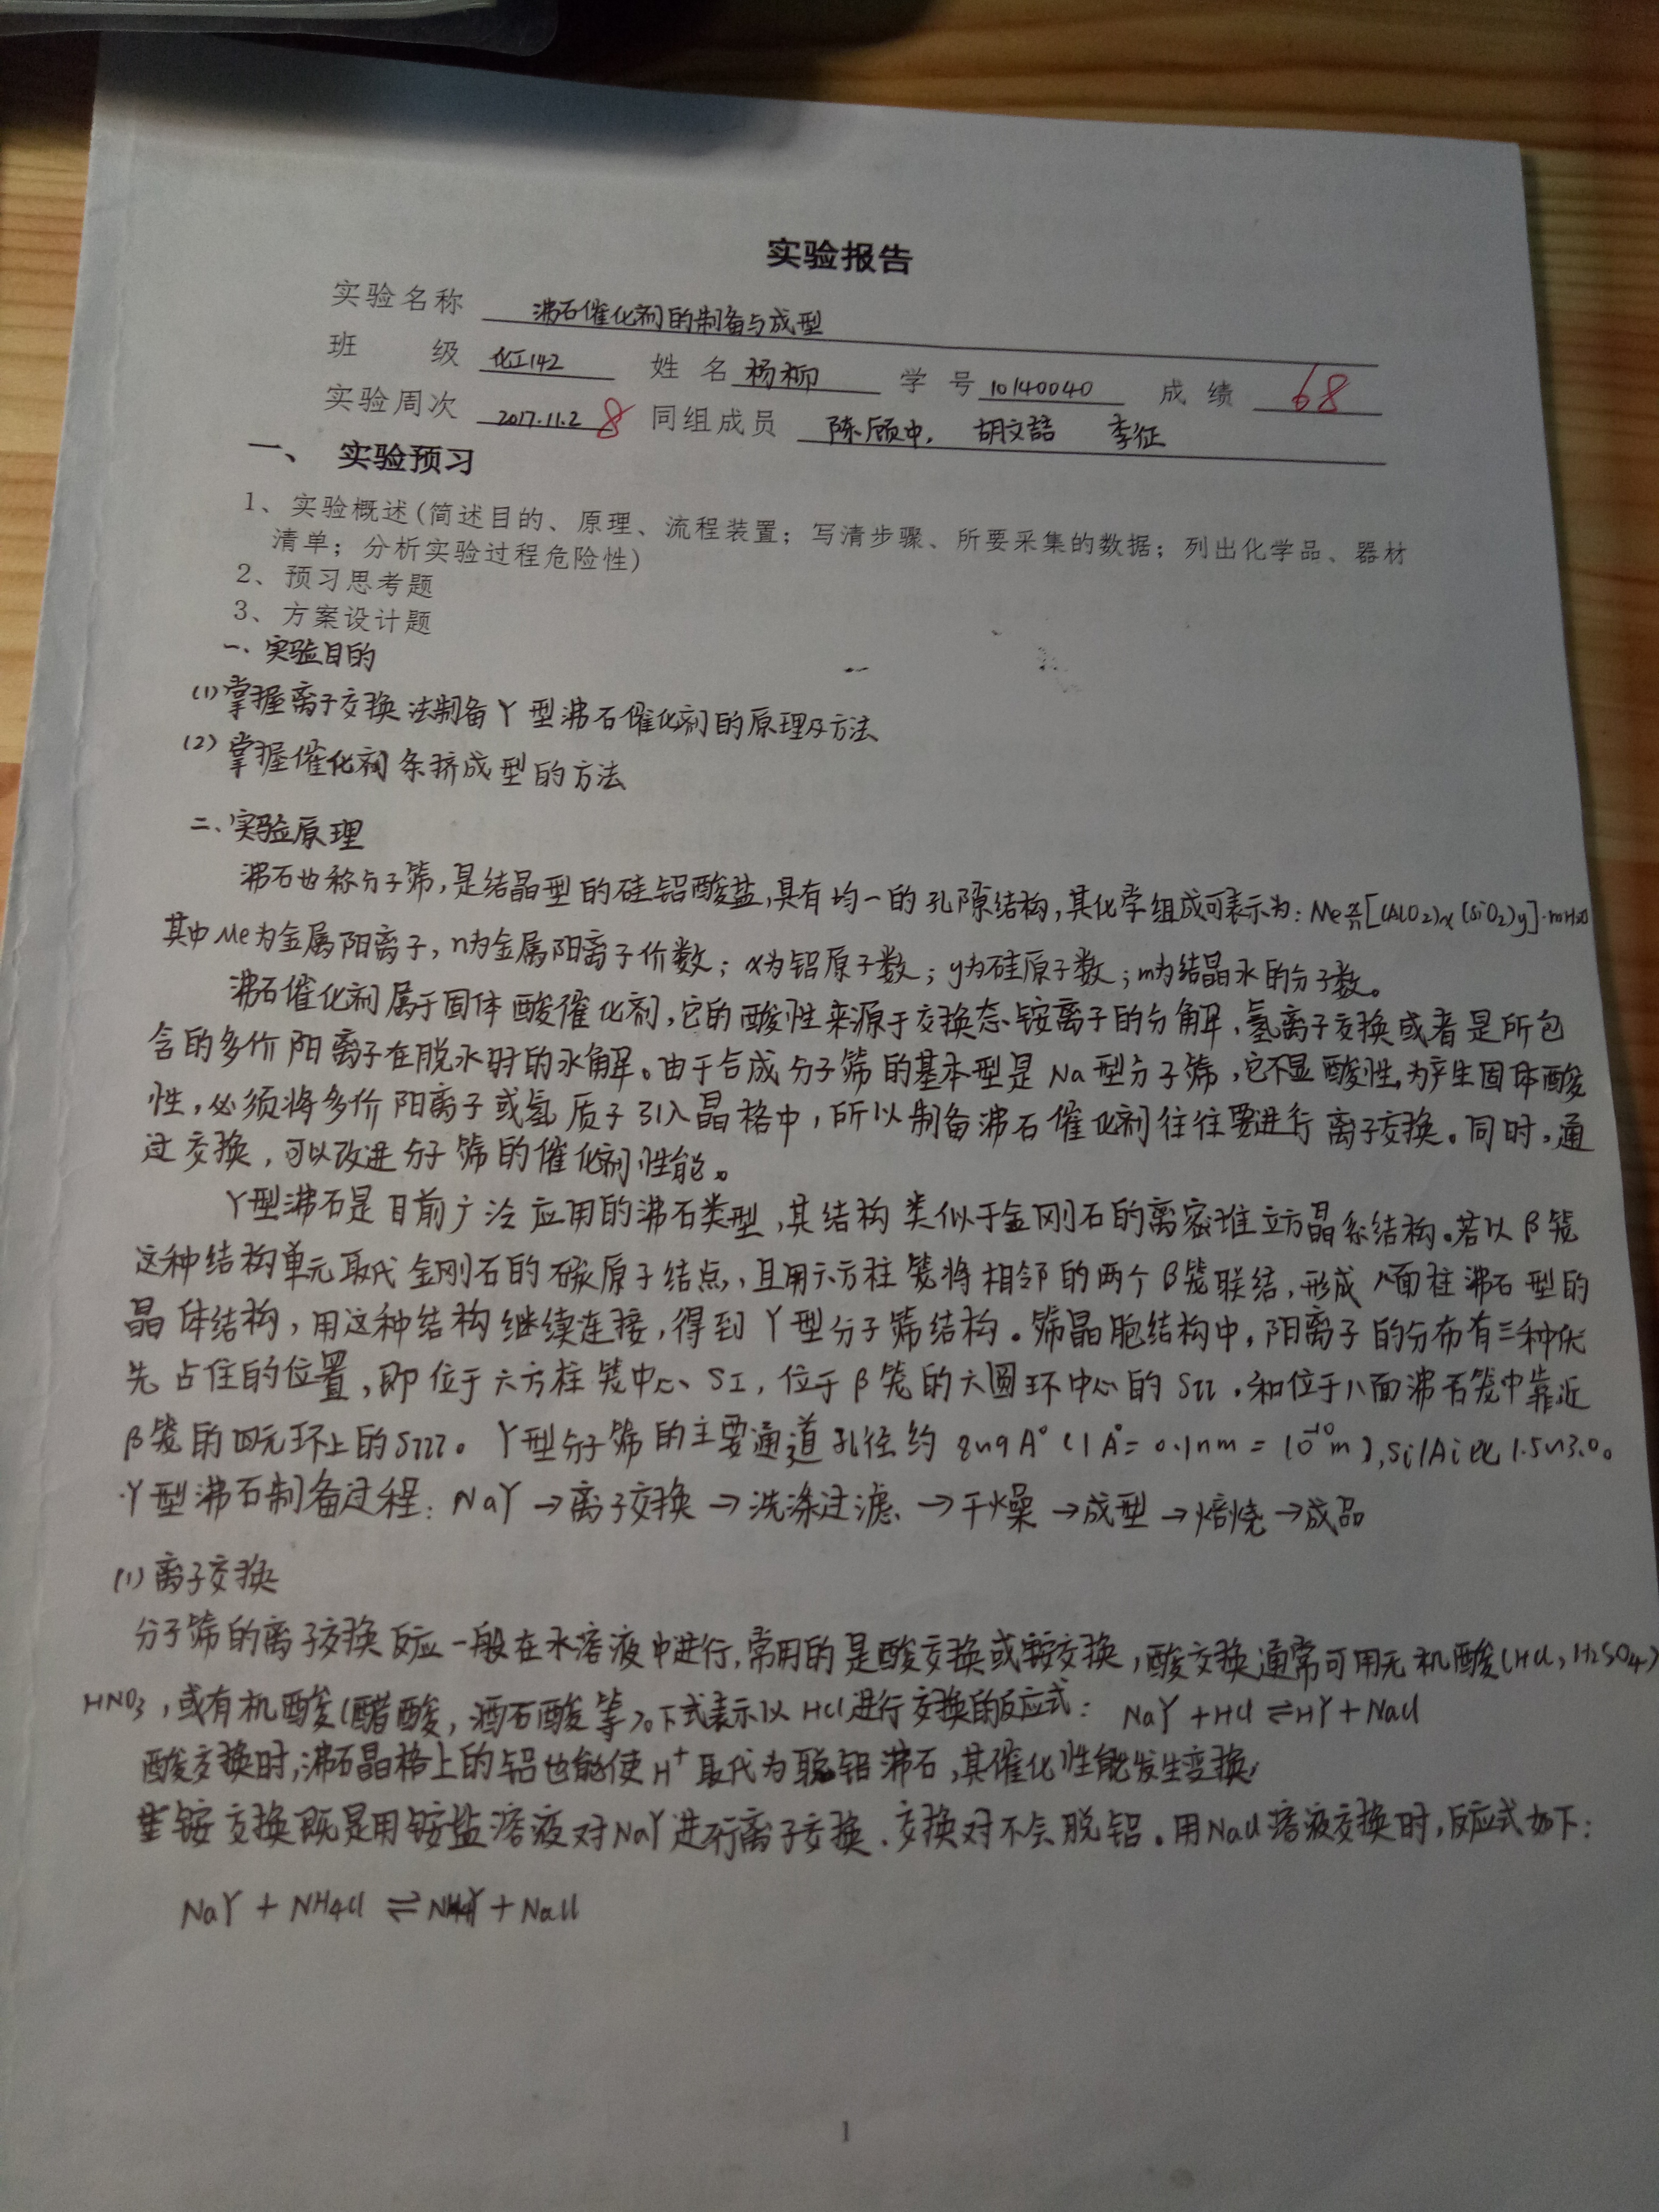 实验报告
实验名称 沸石催化剂的制备与成型
班 级 化工142 姓 名 杨柳 学 号 10140040 成 绩 68
实验周次 2017.11.2 8 同组成员 陈顾中, 胡文喆 李征
一、 实验预习
1、实验概述(简述目的、原理、流程装置;写清步骤、所要采集的数据;列出化学品、器材
清单;分析实验过程危险性)
2、预习思考题
3、方案设计题
一、实验目的
(1)掌握离子交换法制备Y型沸石催化剂的原理及方法
(2)掌握催化剂条挤成型的方法
二、实验原理
沸石也称分子筛,是结晶型的硅铝酸盐,具有均一的孔隙结构,其化学组成可表示为:Me x/n[(AlO2)x(SiO2)y]·mH2O
其中Me为金属阳离子,n为金属阳离子价数;x为铝原子数;y为硅原子数;m为结晶水的分子数。
沸石催化剂属于固体酸催化剂,它的酸性来源于交换态铵离子的分解、氢离子交换或者是所包
含的多价阳离子在脱水时的水解。由于合成分子筛的基本型是Na型分子筛,它不显酸性,为产生固体酸
性,必须将多价阳离子或氢质子引入晶格中,所以制备沸石催化剂往往要进行离子交换。同时,通
过交换,可以改进分子筛的催化剂性能。
Y型沸石是目前广泛应用的沸石类型,其结构类似于金刚石的离密堆立方晶系结构。若以β笼
这种结构单元取代金刚石的碳原子结点,且用六方柱笼将相邻的两个β笼联结,形成八面柱沸石型的
晶体结构,用这种结构继续连接,得到Y型分子筛结构。筛晶胞结构中,阳离子的分布有三种优
先占住的位置,即位于六方柱笼中心、SI,位于β笼的六圆环中心的SII,和位于八面沸石笼中靠近
β笼的四元环上的SIII。Y型分子筛的主要通道孔径约8~9A°(1A°=0.1nm=10^-10m),Si/Al比1.5~3.0。
Y型沸石制备过程:NaY→离子交换→洗涤过滤→干燥→成型→焙烧→成品
(1)离子交换
分子筛的离子交换反应一般在水溶液中进行,常用的是酸交换或铵交换,酸交换通常可用无机酸(HCl,H2SO4)
HNO3,或有机酸(醋酸,酒石酸等)。下式表示以HCl进行交换的反应式: NaY+HCl⇌HY+NaCl
酸交换时,沸石晶格上的铝也能使H+取代为脱铝沸石,其催化性能发生变换,
铵交换既是用铵盐溶液对NaY进行离子交换、交换对不会脱铝。用NaCl溶液交换时,反应式如下:
NaY + NH4Cl ⇌ NH4Y + NaCl
1